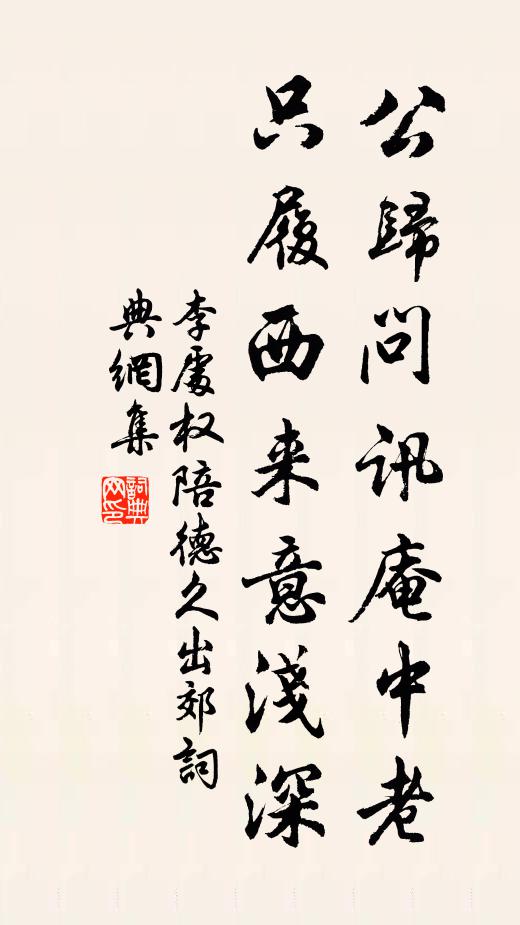 公歸問訊庵中老
只履西来意淺深
李處权陪德久出郊詞
典網集
詞典
网印